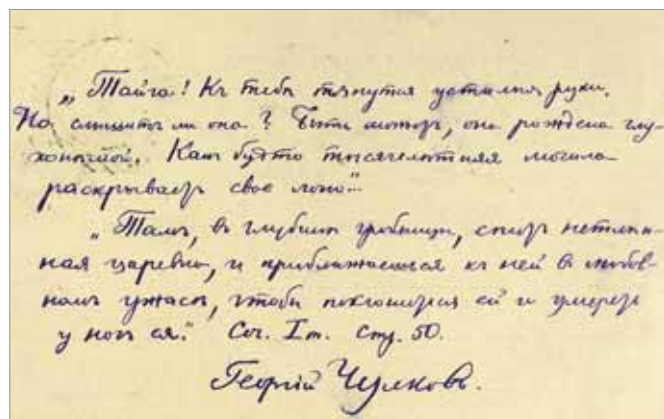 „Тайга! Къ тебѣ тянутся усталыя руки.
Но слышитъ ли она? Быть можетъ, она рождена глу-
хонѣмой. Какъ будто тысячелѣтняя могила
раскрываетъ свое лоно..."
„Тамъ, въ глубинѣ гробницы, спитъ нетлѣн-
ная царевна, и приближаешься къ ней въ любов-
номъ ужасѣ, чтобы поклониться ей и умереть
у ногъ ея." Соч. I т. Стр. 50.
Георгій Чулковъ.